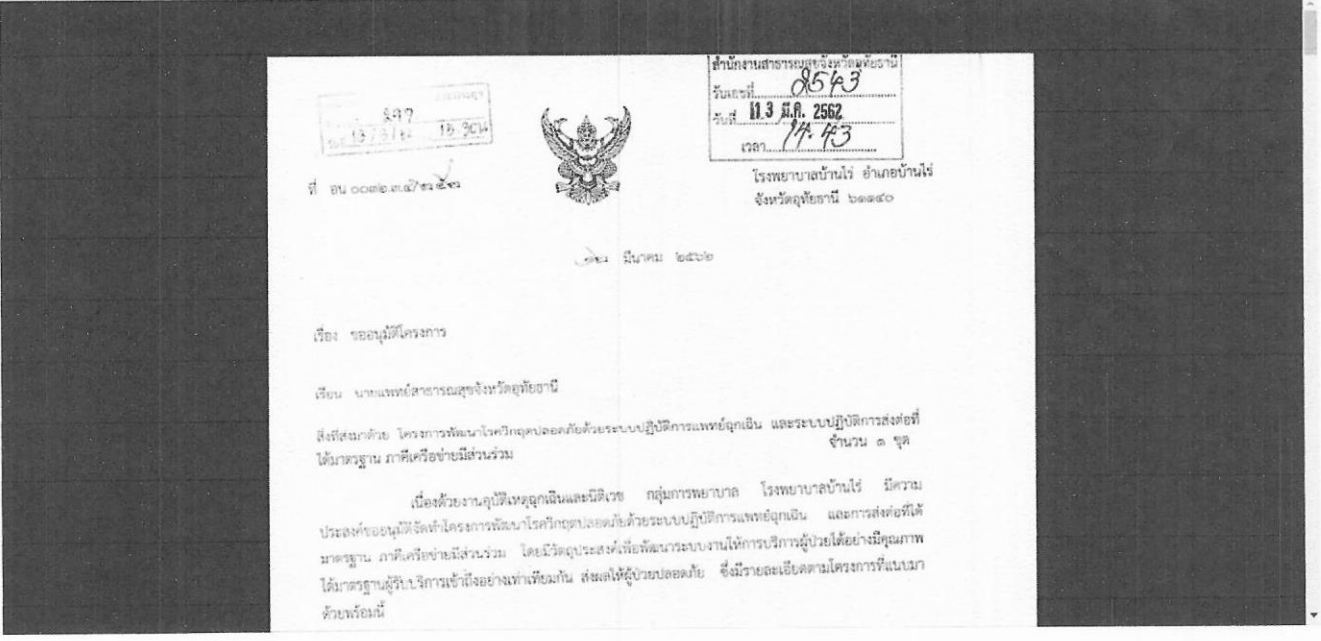 สำนักงานสาธารณสุขจังหวัดอุทัยธานี
รับเลขที่ 2543
วันที่ 13 มี.ค. 2562
เวลา 14.43
ที่ อน ๐๐๓๒.๓.๕/
โรงพยาบาลบ้านไร่ อำเภอบ้านไร่
จังหวัดอุทัยธานี ๖๑๑๔๐
๑๒ มีนาคม ๒๕๖๒
เรื่อง ขออนุมัติโครงการ
เรียน นายแพทย์สาธารณสุขจังหวัดอุทัยธานี
สิ่งที่ส่งมาด้วย โครงการพัฒนาโรควิกฤตปลอดภัยด้วยระบบปฏิบัติการแพทย์ฉุกเฉิน และระบบปฏิบัติการส่งต่อที่
ได้มาตรฐาน ภาคีเครือข่ายมีส่วนร่วม จำนวน ๑ ชุด
เนื่องด้วยงานอุบัติเหตุฉุกเฉินและนิติเวช กลุ่มการพยาบาล โรงพยาบาลบ้านไร่ มีความ
ประสงค์ขออนุมัติจัดทำโครงการพัฒนาโรควิกฤตปลอดภัยด้วยระบบปฏิบัติการแพทย์ฉุกเฉิน และการส่งต่อที่ได้
มาตรฐาน ภาคีเครือข่ายมีส่วนร่วม โดยมีวัตถุประสงค์เพื่อพัฒนาระบบงานให้การบริการผู้ป่วยได้อย่างมีคุณภาพ
ได้มาตรฐานผู้รับบริการเข้าถึงอย่างเท่าเทียมกัน ส่งผลให้ผู้ป่วยปลอดภัย ซึ่งมีรายละเอียดตามโครงการที่แนบมา
ด้วยพร้อมนี้